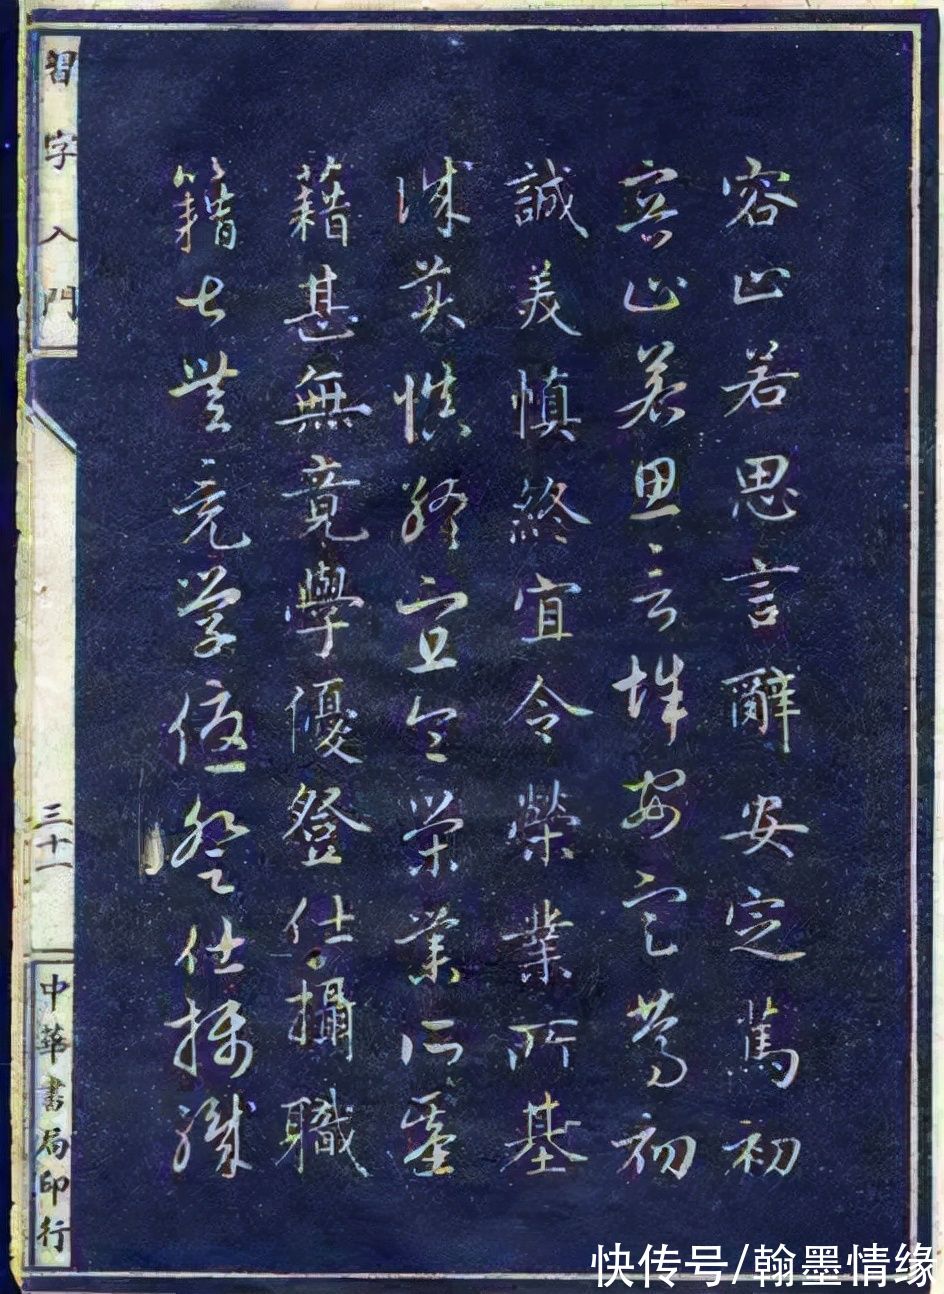 容止若思言辭安定篤初
容止若思言辭安定篤初
誠美慎終宜令榮業所基
誠美慎終宜令榮業所基
藉甚無竟學優登仕攝職
籍甚無竟學優登仕攝職
習字入門
三十一
中華書局印行
快传号/翰墨情缘